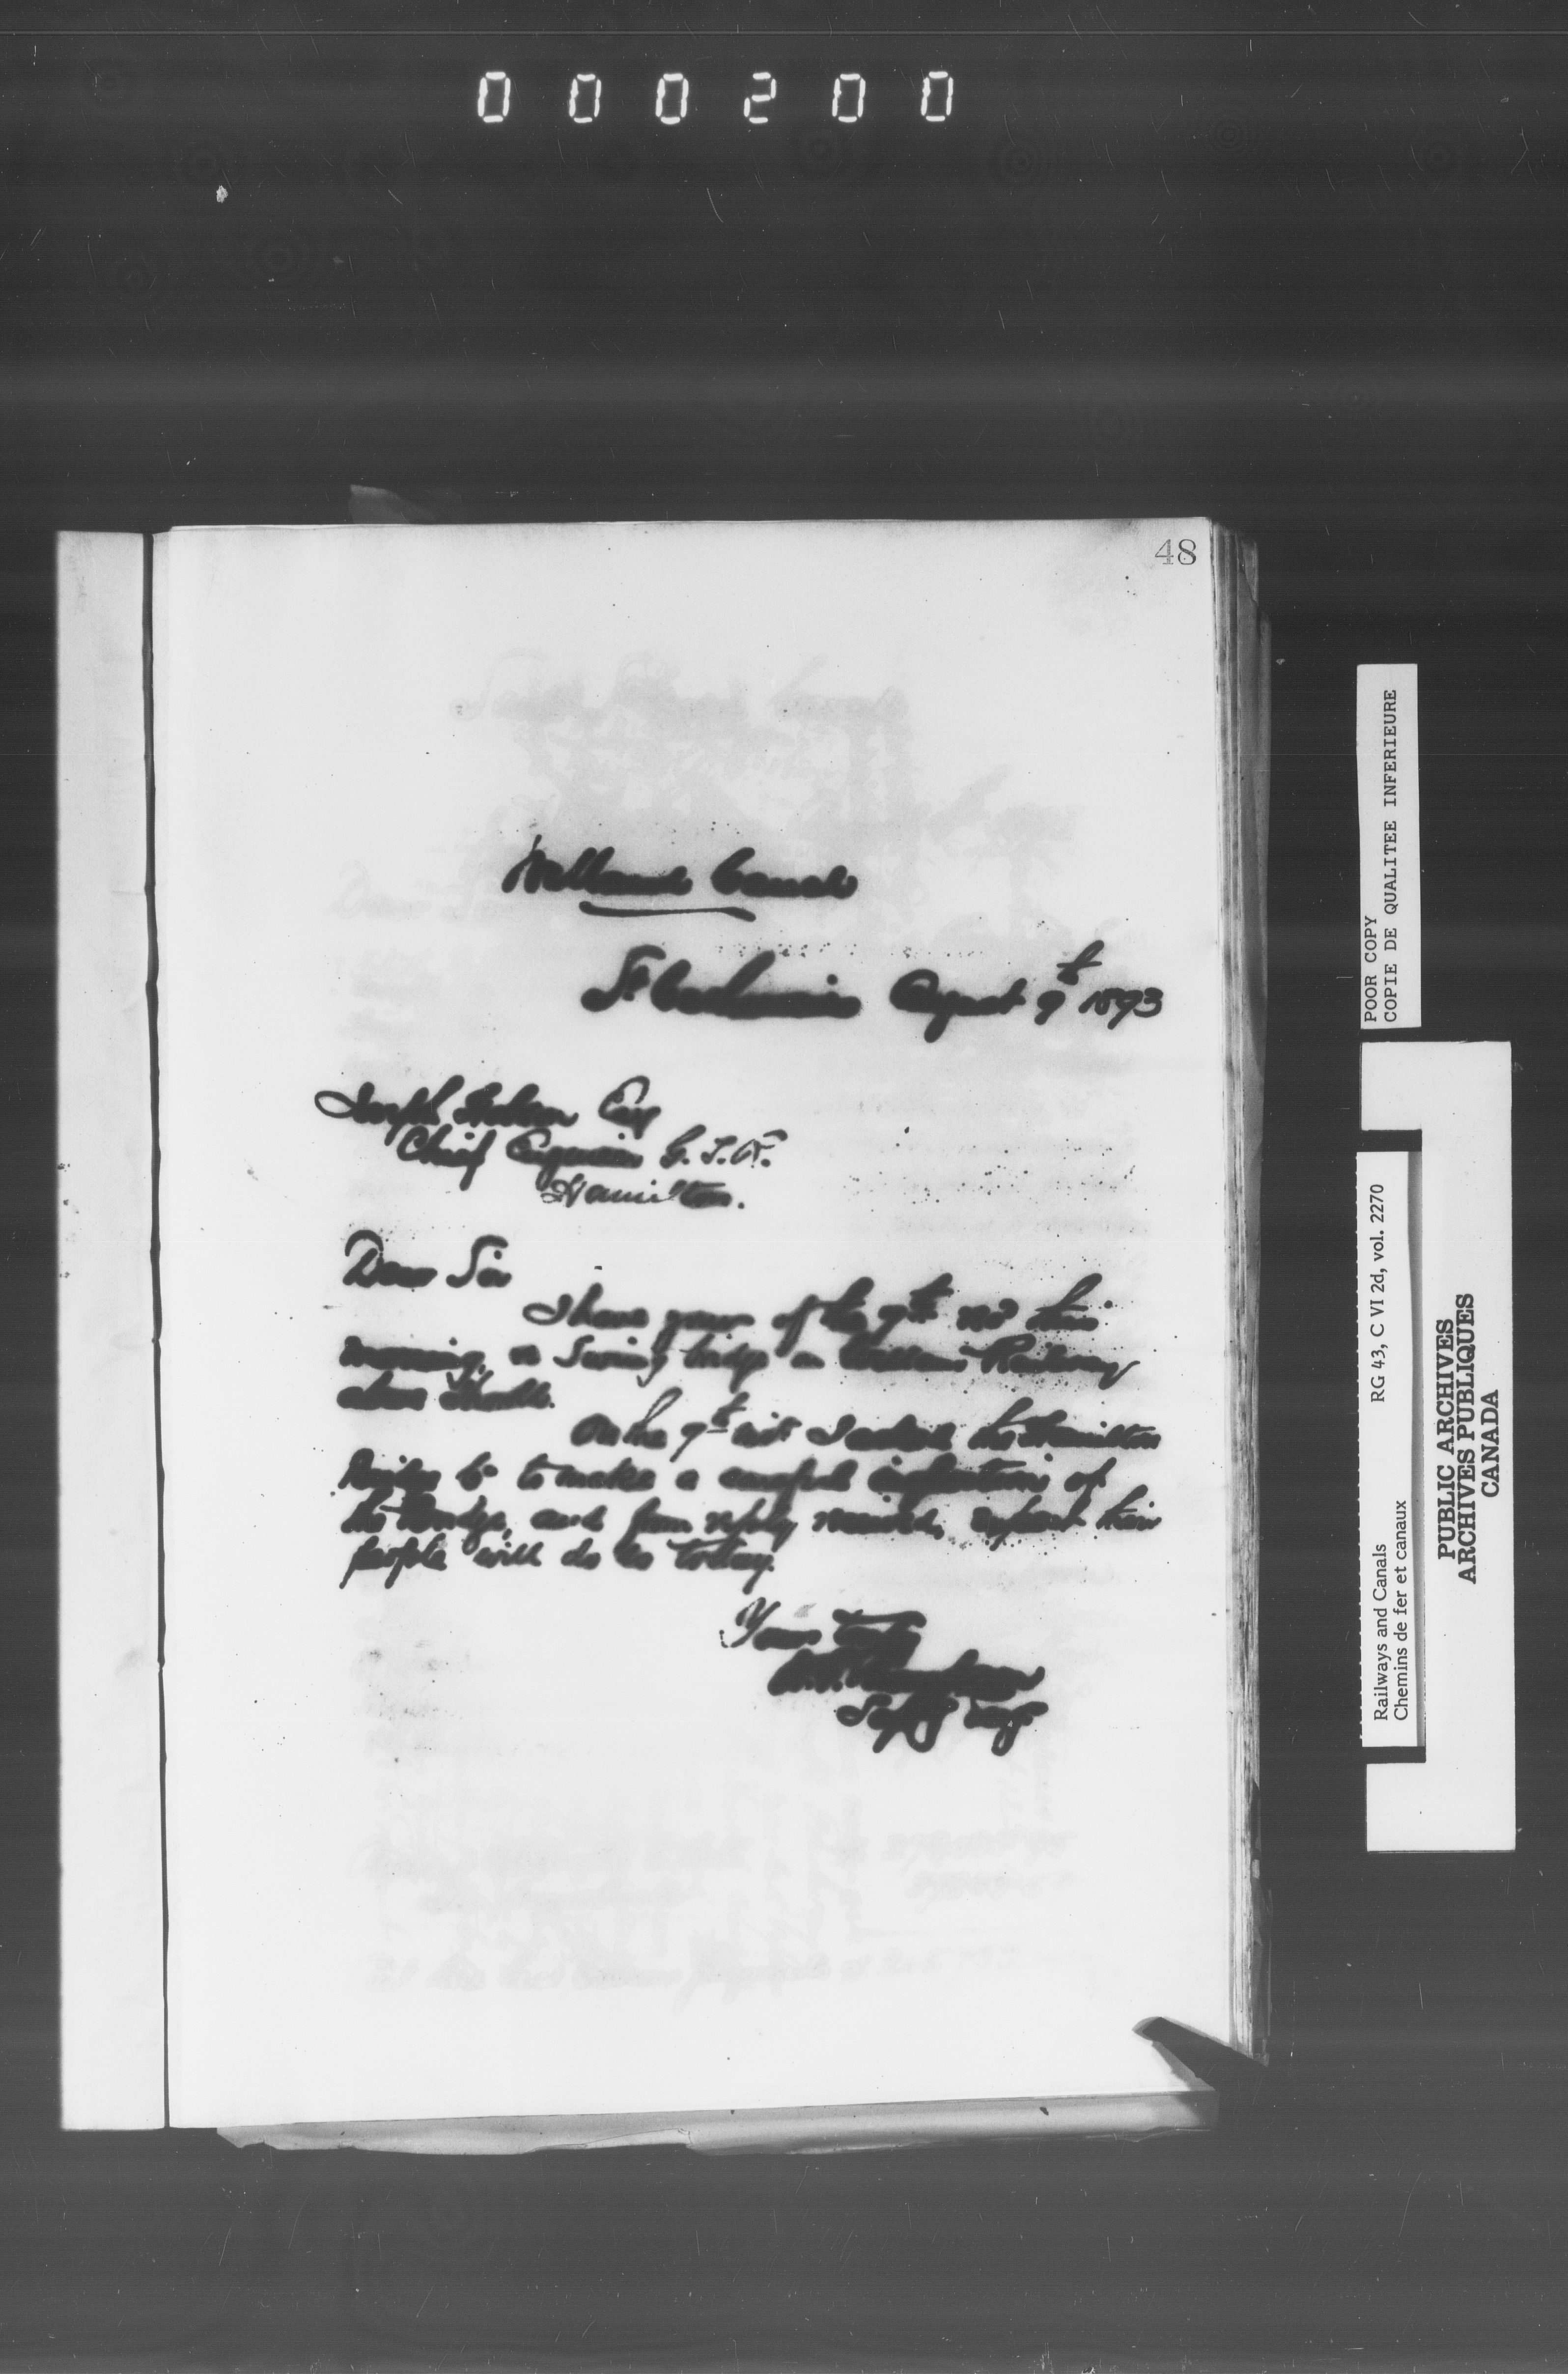 000200
48
Welland Canal
St Catharines August 9th 1893
Joseph Hobson Esq
Chief Engineer G.T.R.
Hamilton.
Dear Sir
I have yours of the 9th this
morning, re Swing bridge on Welland Railway
above Thorold.
On the 9th inst I asked the Hamilton
Bridge Co to make a careful inspection of
the Bridge, and from reply received, expect their
people will do so today.
Yours truly
Suptg Eng
POOR COPY
COPIE DE QUALITEE INFERIEURE
RG 43, C VI 2d, vol. 2270
Railways and Canals
Chemins de fer et canaux
PUBLIC ARCHIVES
ARCHIVES PUBLIQUES
CANADA